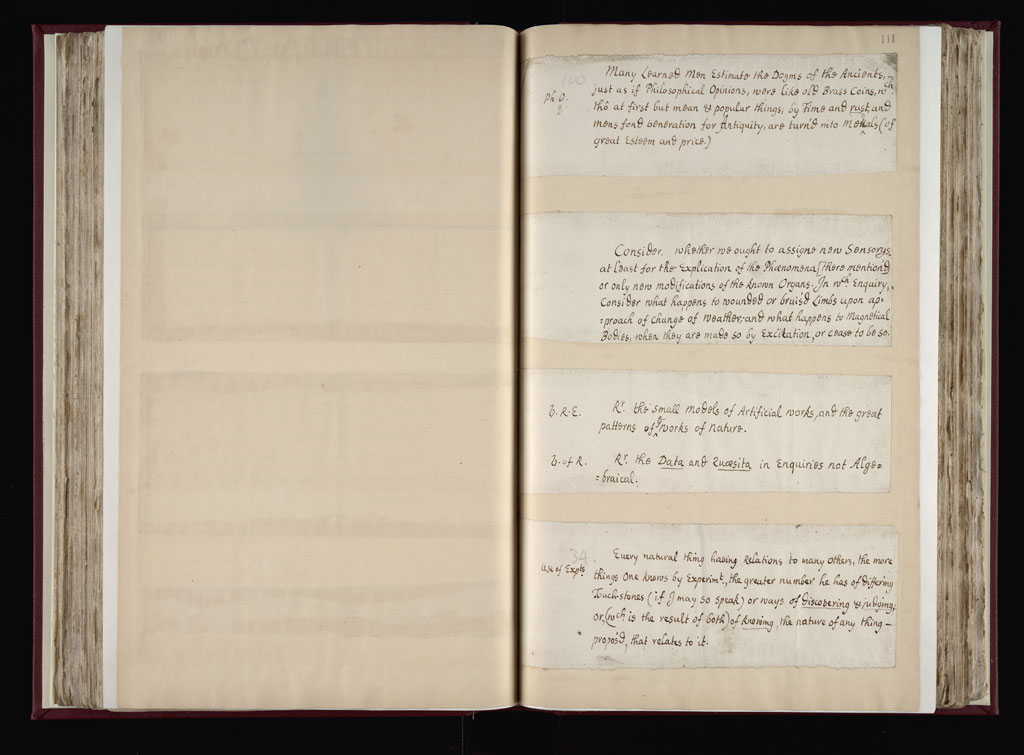 111
100
Many Learned Men Estimate the Dogms of the Ancients,
Ph. O. just as if Philosophical Opinions, were like old Brass Coins, wch.
thô at first but mean & popular things, by Time and rust and
mens fond Veneration for Antiquity, are turn'd into Mettals (of
great Esteem and price.)
Consider, whether we ought to assigne new Sensorys,
at least for the Explication of the Phænomena [there mention'd]
or only new modifications of the known Organs. In wch Enquiry,
Consider what happens to wounded or bruis'd Limbs upon ap=
=proach of change of weather, and what happens to Magnetical
Bodies, when they are made so by Excitation, or cease to be so.
V. R. E. Rr. the small models of Artificial works, and the great
patterns of ye works of Nature.
V. of R. Rr. the Data and Quæsita in Enquiries not Alge=
=braical.
34
Every natural thing having Relations to many others, the more
Use of Expts things One knows by Experimt., the greater number he has of differing
Touch-stones (if I may so speak) or ways of discovering & judging,
or, (wch is the result of both) of knowing, the nature of any thing –
propos'd, that relates to it.